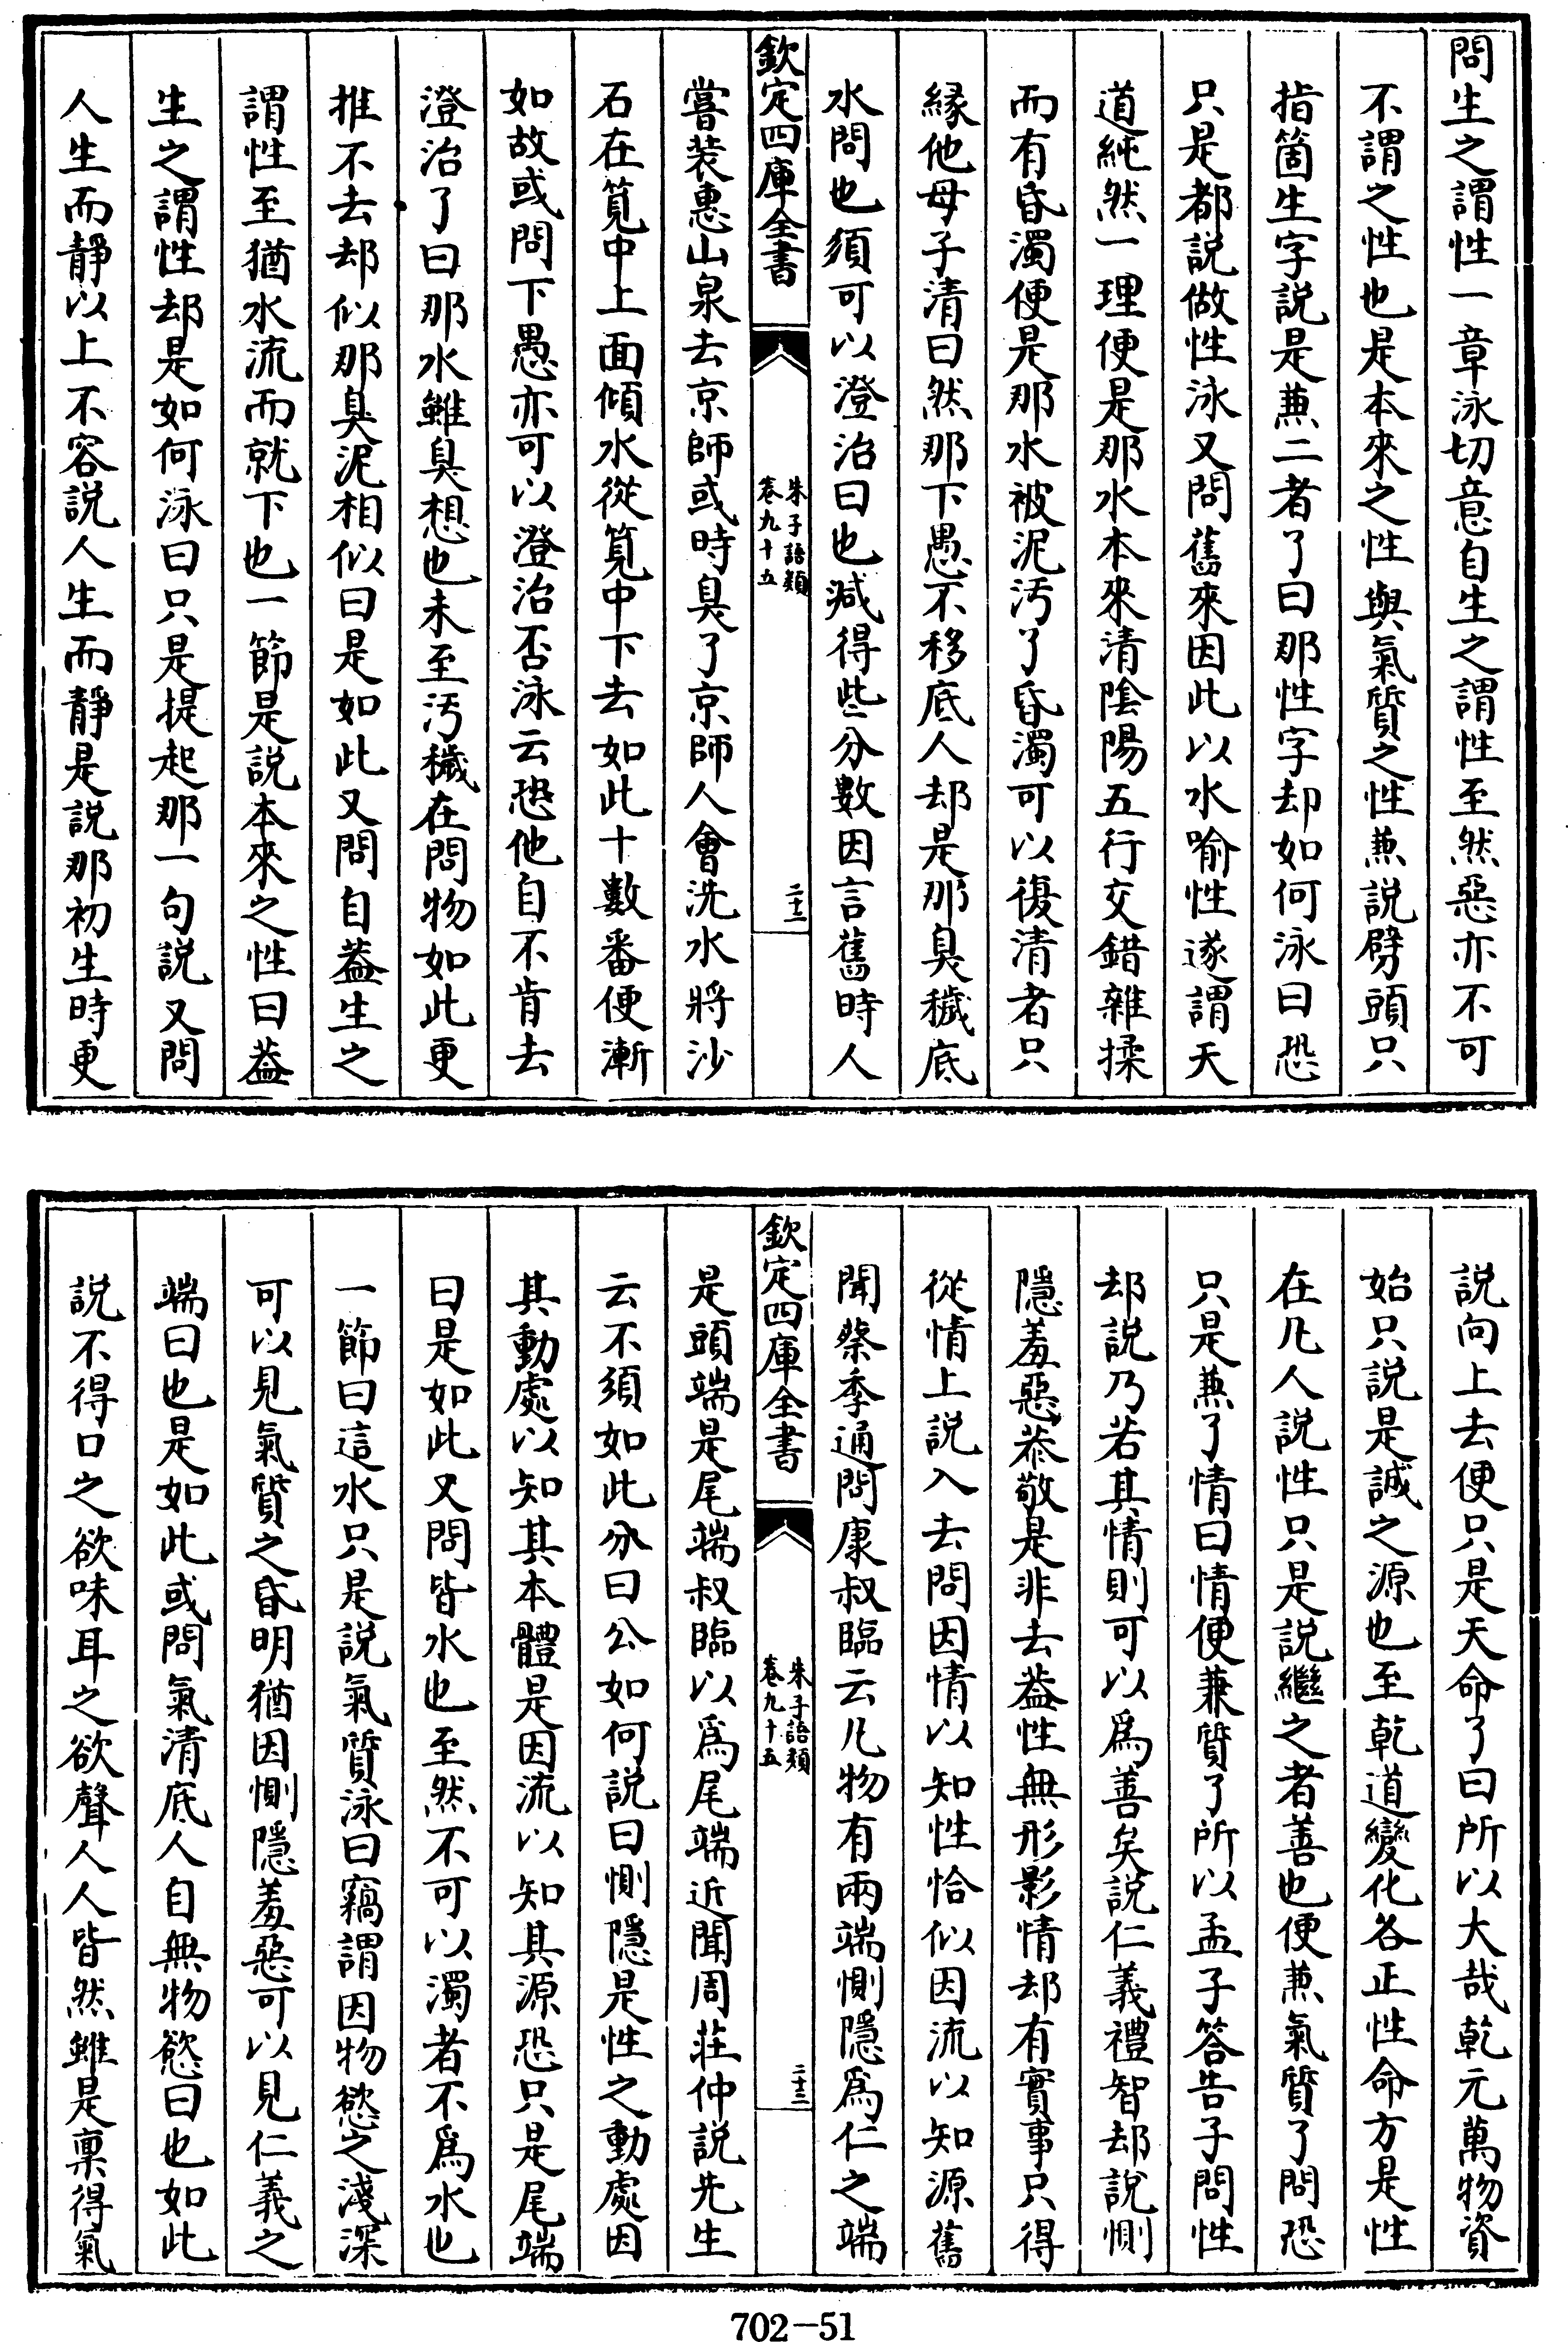 問生之謂性一章泳切意自生之謂性至然惡亦不可
不謂之性也是本來之性與氣質之性兼説劈頭只
指箇生字説是兼二者了曰那性字却如何泳曰恐
只是都説做性泳又問舊來因此以水喻性遂謂天
道純然一理便是那水本來清陰陽五行交錯雜揉
而有昏濁便是那水被泥污了昏濁可以復清者只
縁他母子清曰然那下愚不移底人却是那臭穢底
水問也須可以澄治曰也減得些分數因言舊時人
欽定四庫全書
朱子語類
卷九十五
二十二
嘗装惠山泉去京師或時臭了京師人會洗水將沙
石在筧中上面傾水從筧中下去如此十數番便漸
如故或問下愚亦可以澄治否泳云恐他自不肯去
澄治了曰那水雖臭想也未至污穢在問物如此更
推不去却似那臭泥相似曰是如此又問自蓋生之
謂性至猶水流而就下也一節是説本來之性曰蓋
生之謂性却是如何泳曰只是提起那一句説又問
人生而靜以上不容説人生而靜是説那初生時更
説向上去便只是天命了曰所以大哉乾元萬物資
始只説是誠之源也至乾道變化各正性命方是性
在凡人説性只是説繼之者善也便兼氣質了問恐
只是兼了情曰情便兼質了所以孟子答告子問性
却説乃若其情則可以為善矣説仁義禮智却説惻
隱羞惡恭敬是非去蓋性無形影情却有實事只得
從情上説入去問因情以知性恰似因流以知源舊
聞蔡季通問康叔臨云凡物有兩端惻隱為仁之端
欽定四庫全書
朱子語類
卷九十五
二十三
是頭端是尾端叔臨以為尾端近聞周莊仲説先生
云不須如此分曰公如何説曰惻隱是性之動處因
其動處以知其本體是因流以知其源恐只是尾端
曰是如此又問皆水也至然不可以濁者不為水也
一節曰這水只是説氣質泳曰竊謂因物慾之淺深
可以見氣質之昏明猶因惻隱羞惡可以見仁義之
端曰也是如此或問氣清底人自無物慾曰也如此
説不得口之欲味耳之欲聲人人皆然雖是稟得氣
702-51